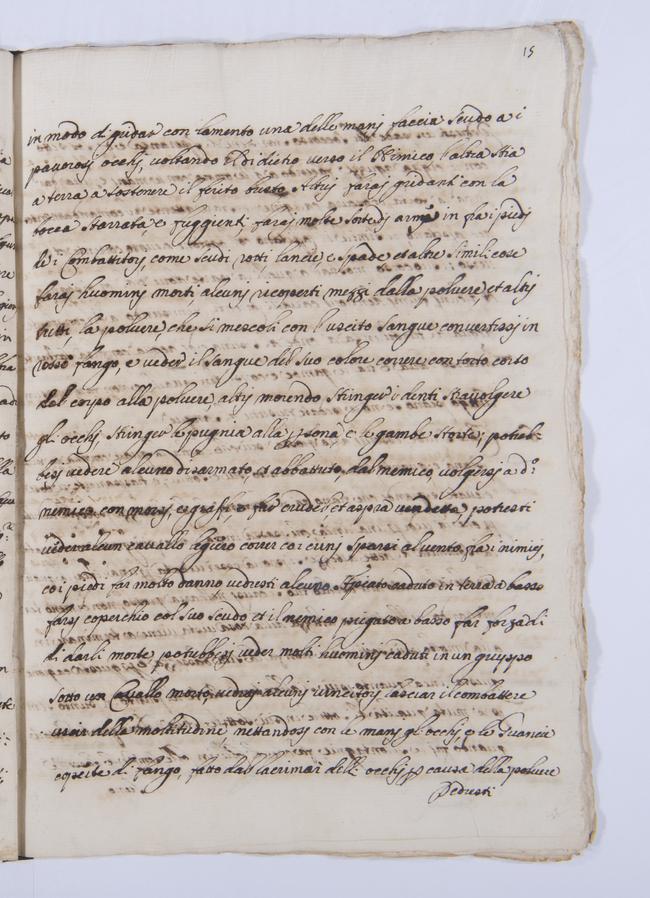 15
in modo di gridar con lamento una delle manj faccia scudo a i
pavorosj occhj, voltando il didietro verso il Nimico l'altra stia
a terra a sostenere il ferito busto, Altrj faraj gridanti con la
bocca sbarrata, e fuggienti faraj molte sorte dj arme in fra i piedj
de i Combattitorj, come scudi rotti, lancie, e spade et altre simili cose
faraj huominj morti alcunj ricoperti mezzi dalla polvere, et altrj
tutti, la polvere, che si mescoli con l'uscito sangue convertirsj in
rosso fango, e veder il sangue del suo colore correre con torto corso
del corpo alla polvere, altrj morendo stringer i denti stravolgere
gl'occhj, stringer le pugnia alla persona e le gambe storte; potreb-
besj vedere alcuno disarmato, et abbattuto, dal nemico, volgersj a d.º
nemico con morsj, e graffi, e far crudel' et aspra vendetta, potresti
veder alcun cavallo legiero correr co i crinj sparsi al vento fra i nimicj,
co i piedi far molto danno vedresti alcuno stropiato caduto in terra a basso
farsj coperchio col suo scudo et il nemico piegato a basso far forza di
di darli morte potrebbesj veder molti huominj caduti in un gruppo
sotto un Cavallo morto, vedraj alcunj vincitorj lasciar il combattere
uscir della moltitudine nettandosj con le manj gl'occhj, e le Guancie
coperte di fango, fatto dal lacrimar delli occhj per causa della polvere
Vedresti